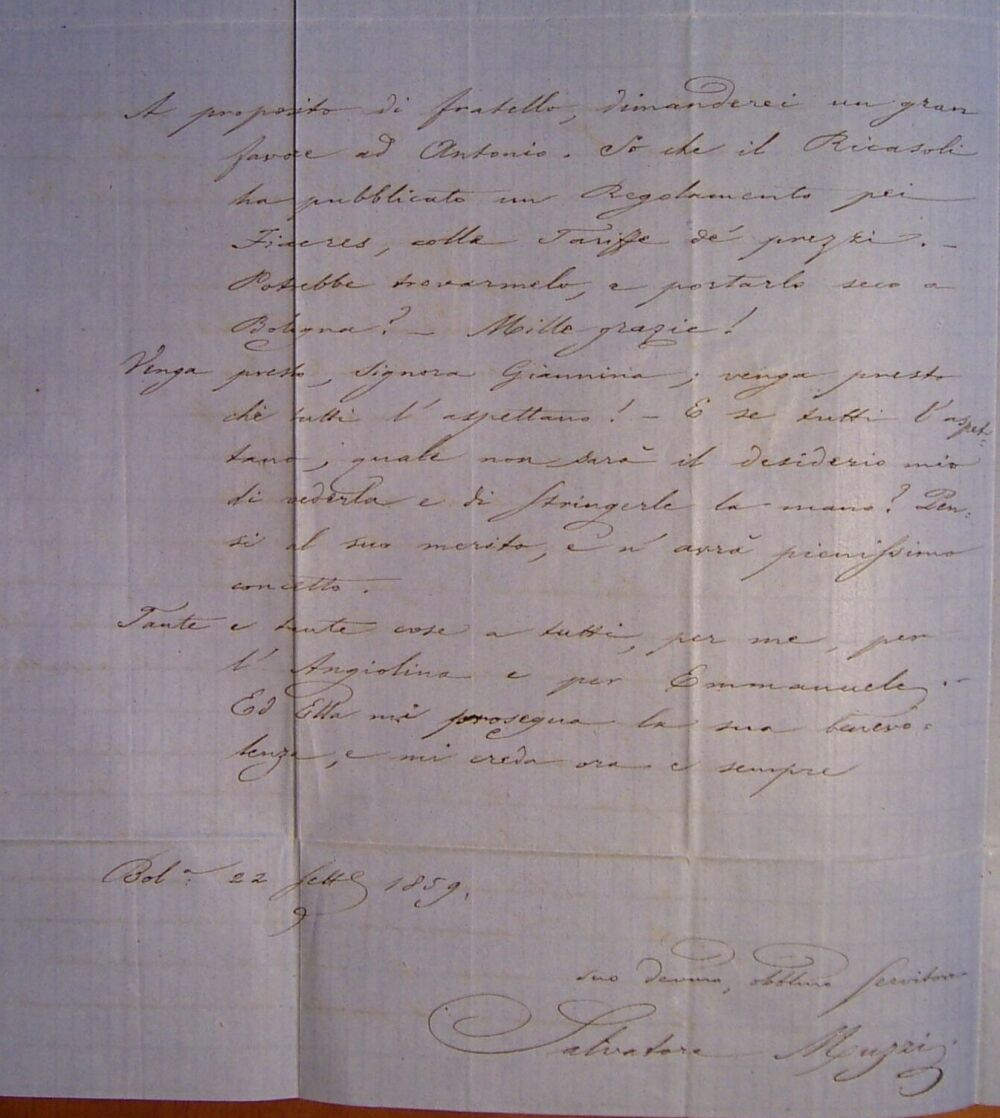 A proposito di fratello, dimanderei un gran
favore ad Antonio. So che il Ricasoli
ha pubblicato un Regolamento pei
Fiacres, colle Tariffe de' prezzi. –
Potrebbe trovarmelo, e portarlo seco a
Bologna? – Mille grazie!
Venga presto, Signora Giannina; venga presto
chè tutti l'aspettano! – E se tutti l'aspet-
tano, quale non sarà il desiderio mio
di vederla e di stringerle la mano? Pen-
si al suo merito, e n'avrà pienissimo
concetto.
Tante e tante cose a tutti, per me, per
l'Angiolina e per Emmanuele. –
Ed Ella mi prosegua la sua benevo-
lenza, e mi creda ora e sempre
Bol.a 22 Sett.e 1859.
suo devmo, obblmo servitore
Salvatore Muzzi